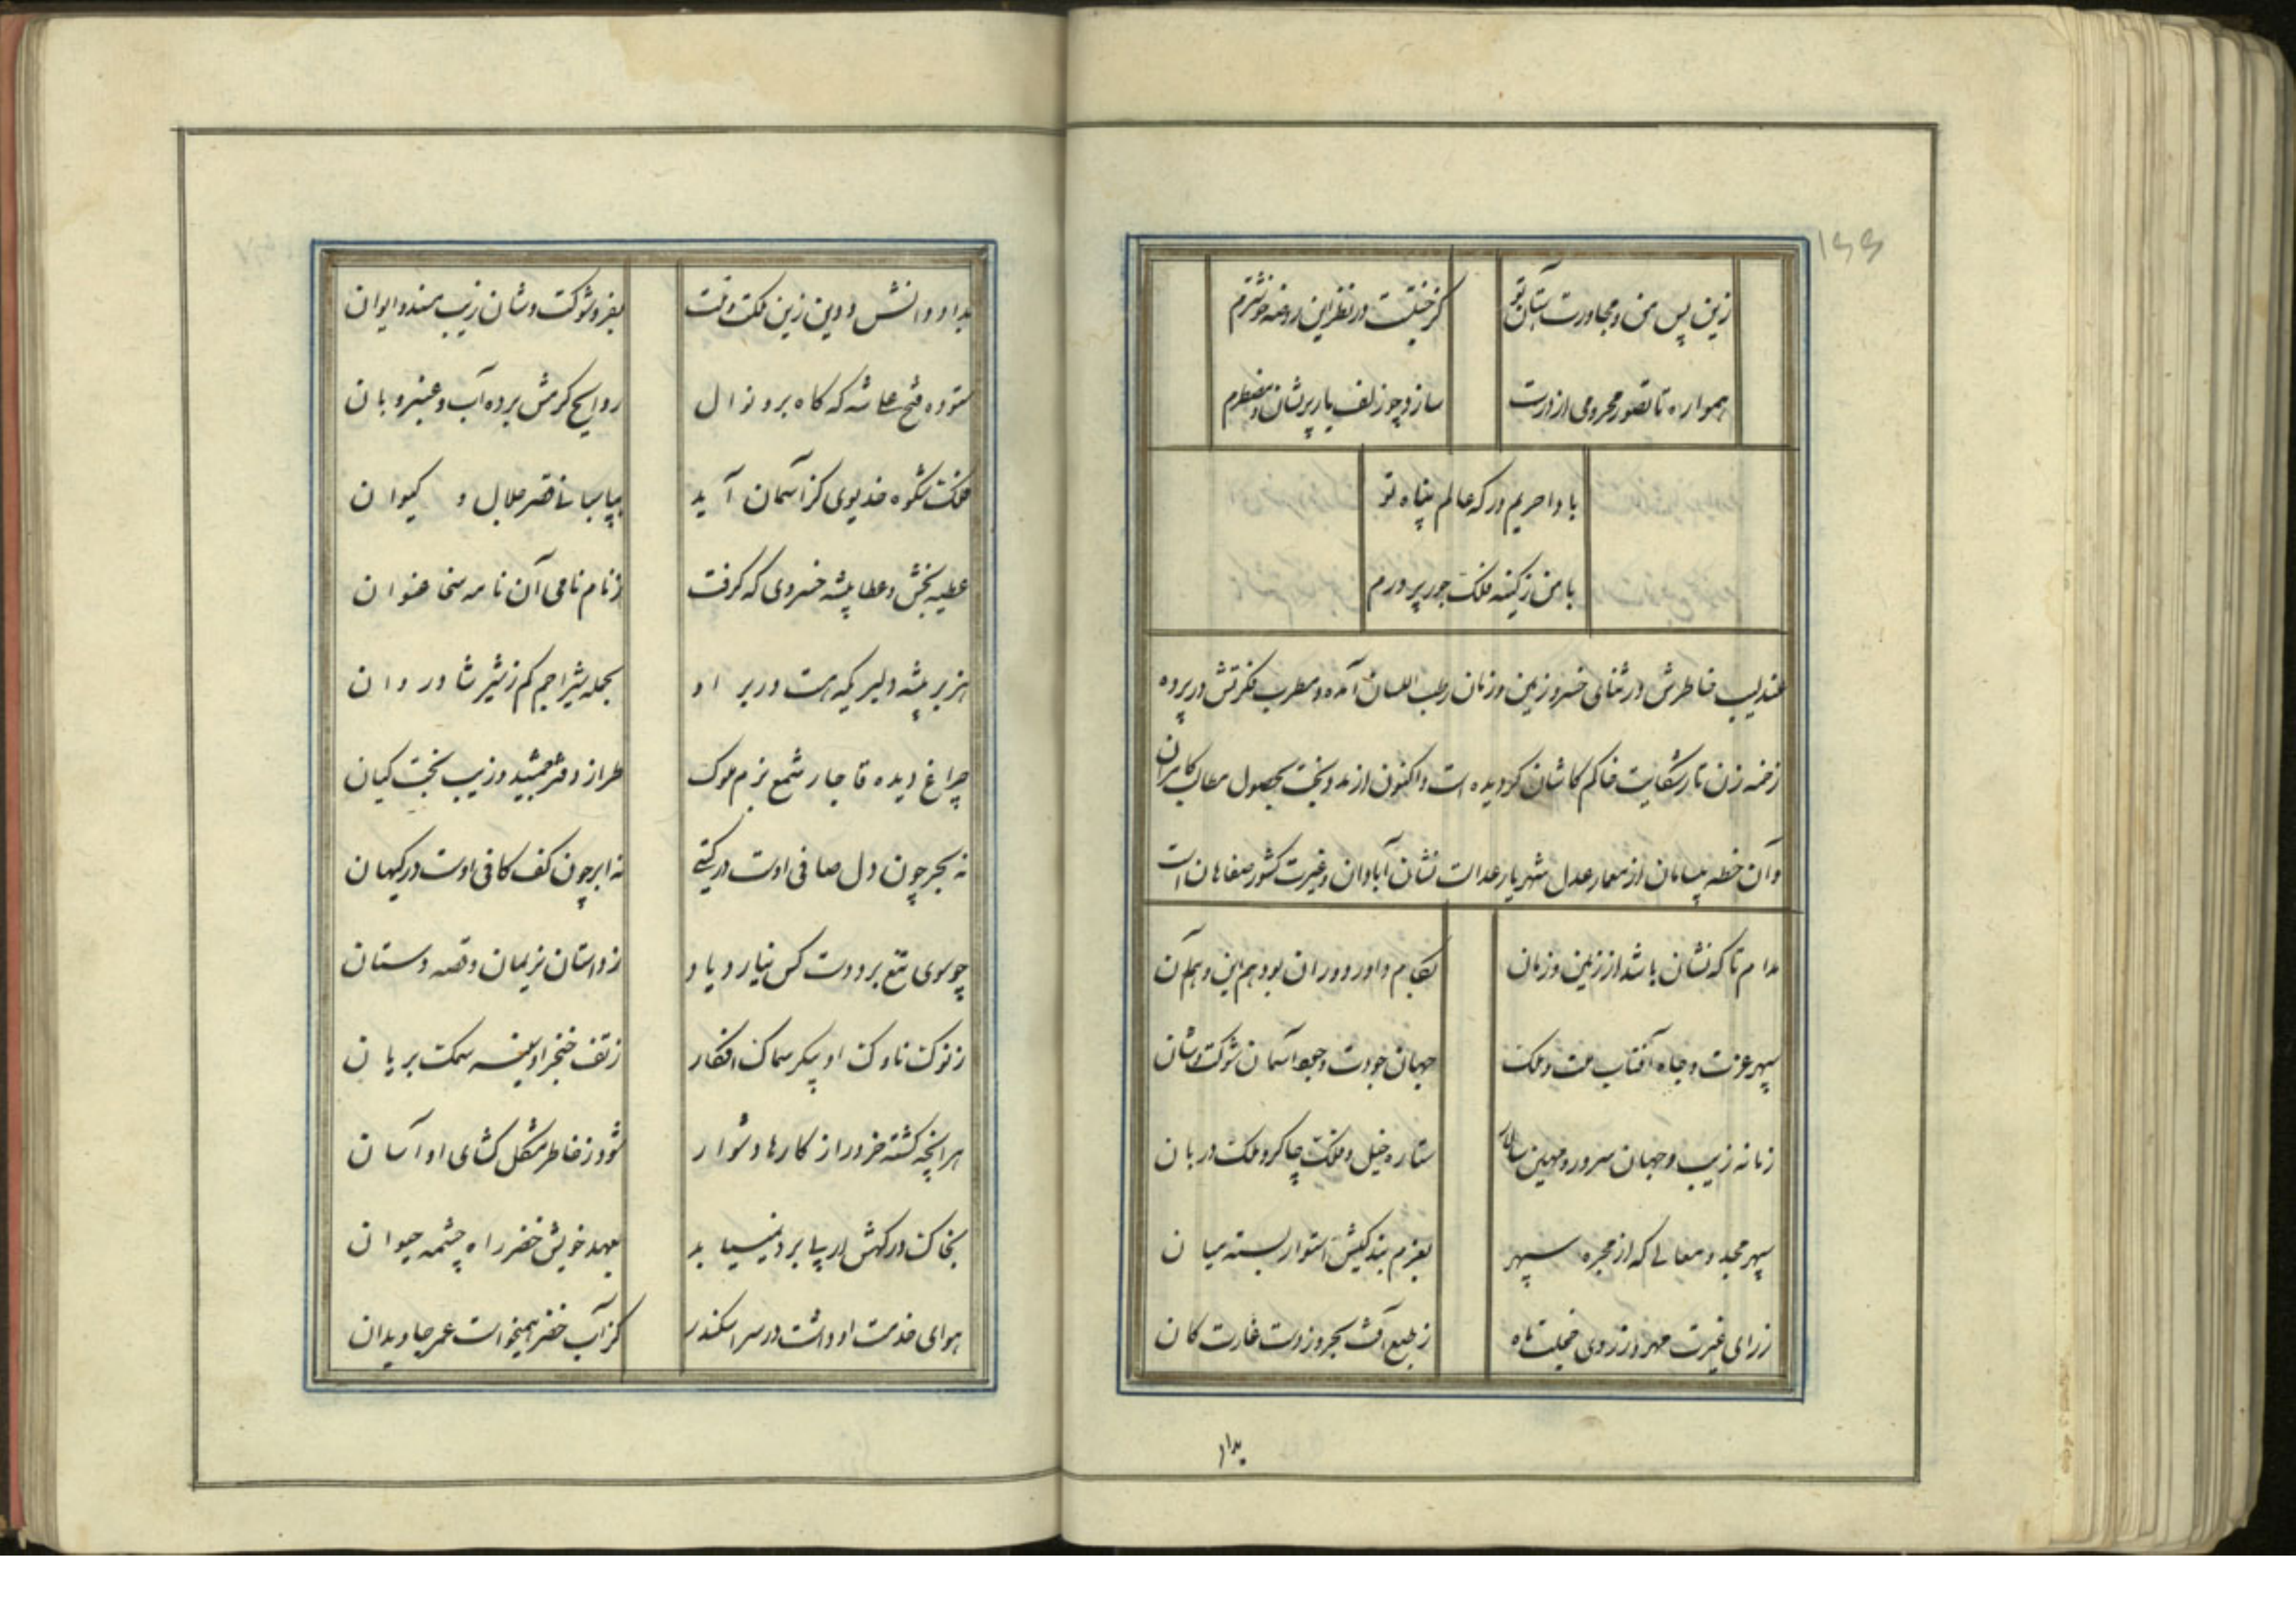 ۱۶۶
زین پس من و مجاورت آستان تو
کز جنت در نظر این روضه خوشترم
همواره تا تصور محرومی از درت
سازد چو زلف یار پریشان و مضطرم
بادا حریم درکه عالم پناه تو
با من ز کینه فلک جور پرورم
عندلیب خاطرش در ثنای خسرو زمین و زمان رطب اللسان آمده و مطرب فکرتش در پرده
زخمه زن تار شکایت حاکم کاشان کردیده است و اکنون از مدد بخت بحصول مطالب کامران
و آن خطه بیسامان از معمار عدل شهریار عدالت نشان آبادان و غیرت کشور صفاهان است
مدام تا که نشان باشد از زمین و زمان
بکام داور دوران بود هم این و هم آن
سپهر عزت و جاه آفتاب ملت و ملک
جهان جودت و جود آسمان شوکت و شان
زمانه زیب و جهان سرور و مهین سالار
ستاره خیل و فلک چاکر و ملک دربان
سپهر مجد و معالی که از مجره سپهر
بعزم بندکیش استوار بسته میان
ز رای غیرت مهر و ز روی خجلت ماه
ز طبع آفت بحر و ز دست غارت کان
بداد
بداد و دانش و دین زین ملک و ملت
بفر و شوکت و شان زیب مسند و ایوان
ستوده فتحعلی شه که کاه بر و نوال
روایح کرمش برده آب و عنبر و بان
فلک شکوه خدیوی کز آسمان آید
بپاسبانی قصر جلال و کیوان
عطیه بخش و عطا پیشه خسروی که کرفت
ز نام نامی آن نامه سخا عنوان
هزبر بیشه دلیر یکه هست در بر او
بحمله شیر اجم کم ز شیر شادروان
چراغ دیده قاجار شمع بزم ملوک
طراز دفتر جمشید و زیب تخت کیان
نه بحر چون دل صافی اوست در کیتی
نه ابر چون کف کافی اوست در کیهان
چو سوی تیغ برد دست کس نیارد یاد
ز داستان نریمان و قصه دستان
ز نوک ناوک او پیکر سماک افکار
ز تف خنجر او سینه سمک بریان
هر آنچه کشته خرد را ز کارها دشوار
شود ز خاطر مشکل کشای او آسان
بخاک درکهش ار پا برد نمیسیاید
بعهد خویش خضر راه چشمه حیوان
هوای خدمت او داشت در سر اسکندر
کز آب خضر همیخواست عمر جاویدان